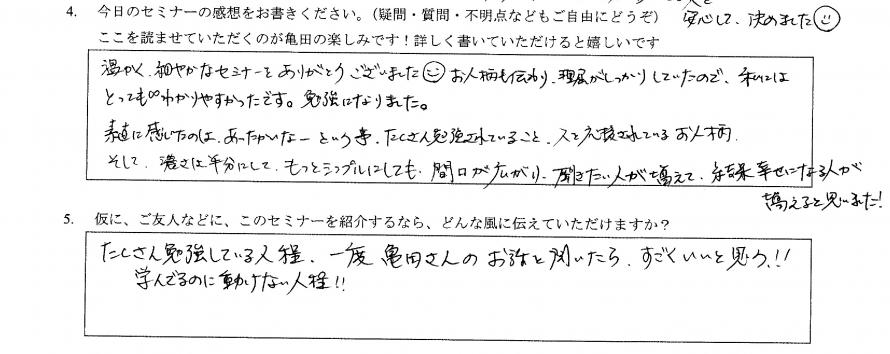 4. 今日のセミナーの感想をお書きください。（疑問・質問・不明点などもご自由にどうぞ） 安心して、決めました☺
ここを読ませていただくのが亀田の楽しみです！詳しく書いていただけると嬉しいです
温かく、細やかなセミナーをありがとうございました☺お人柄も伝わり、理屈がしっかりしていたので、私には
とっても∞わかりやすかったです。勉強になりました。
素直に感じたのは、あったかいなーという事、たくさん勉強されていること、人を応援されているお人柄。
そして、濃さは半分にして、もっとシンプルにしても、間口が広がり、聞きたい人が増えて、結果幸せになる人が
増えると思いました！
5. 仮に、ご友人などに、このセミナーを紹介するなら、どんな風に伝えていただけますか？
たくさん勉強している人程、一度亀田さんのお話を聞いたら、すごくいいと思う、!!
学んでるのに動けない人程!!